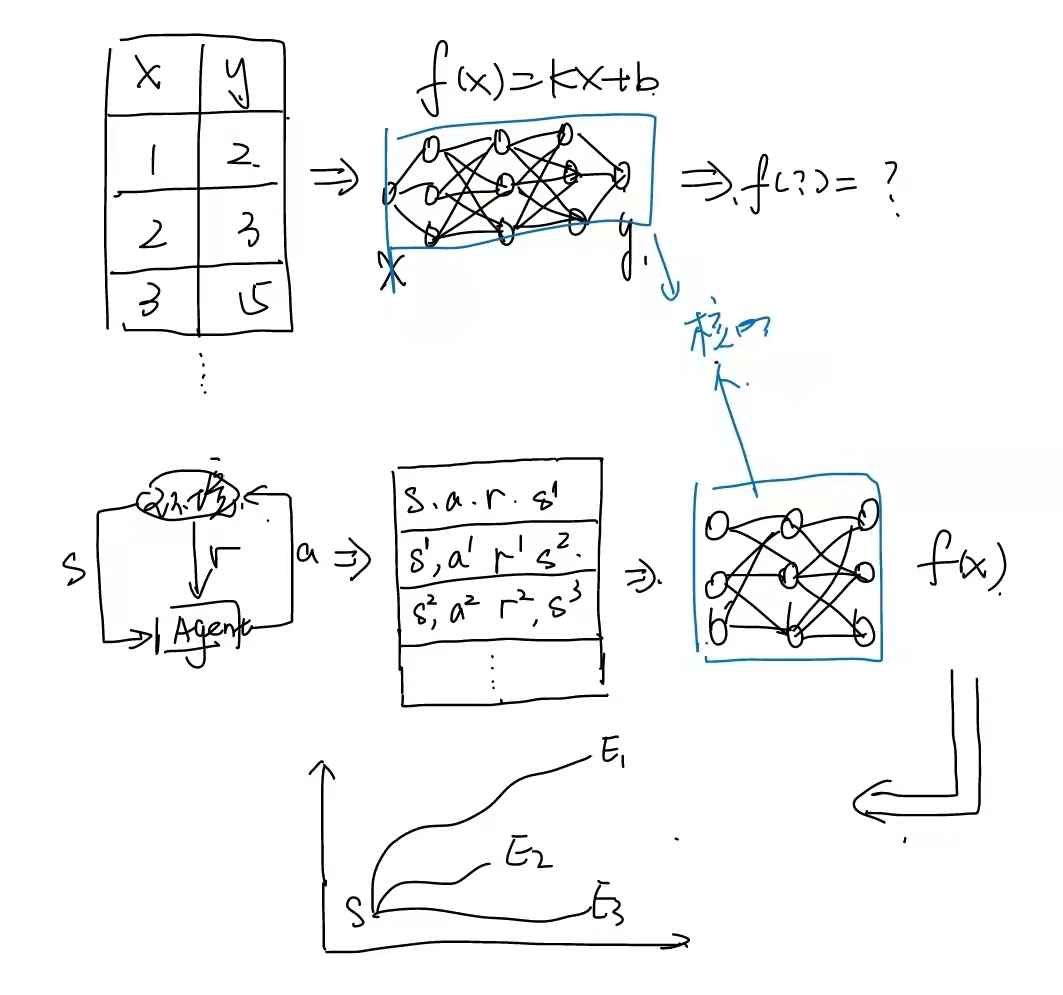 x y
1 2
2 3
3 5
f(x)=kx+b
x
y
⇒ f(?)= ?
核心
环境
s
r
a
Agent
s.a.r.s¹
s¹,a¹ r¹ s².
s²,a² r²,s³
f(x)
E₁
E₂
E₃
S